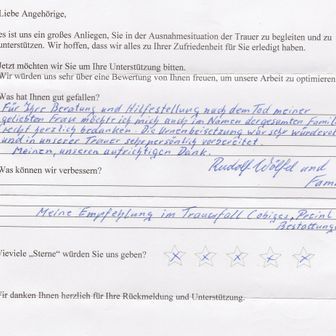 Liebe Angehörige,
es ist uns ein großes Anliegen, Sie in der Ausnahmesituation der Trauer zu begleiten und zu
unterstützen. Wir hoffen, dass wir alles zu Ihrer Zufriedenheit für Sie erledigt haben.
Jetzt möchten wir Sie um Ihre Unterstützung bitten.
Wir würden uns sehr über eine Bewertung von Ihnen freuen, um unsere Arbeit zu optimieren
Was hat Ihnen gut gefallen?
Für Ihre Beratung und Hilfestellung nach dem Tod meiner
geliebten Frau möchte ich mich auch im Namen der gesamten Famil
recht herzlich bedanken. Die Urnenbeisetzung war sehr würdevol
und in unserer Trauer sehr persönlich vorbereitet.
Meinen, unseren aufrichtigen Dank.
Rudolf Wölfel und
Fam
Was können wir verbessern?
Meine Empfehlung im Trauerfall
Bestattung
Wieviele „Sterne“ würden Sie uns geben?
Wir danken Ihnen herzlich für Ihre Rückmeldung und Unterstützung.